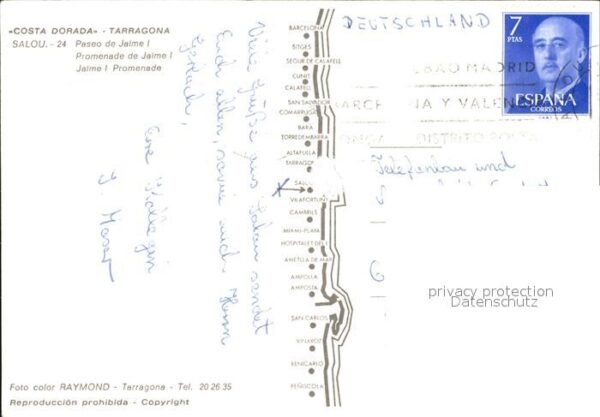 «COSTA DORADA» - TARRAGONA
SALOU. - 24 Paseo de Jaime I
Promenade de Jaime I
Jaime I Promenade
Viele Grüße aus Salou sendet
Euch allen, sowie auch Herrn
Gerlach,
Eure Kollegin
BARCELONA
SITGES
SEGUR DE CALAFELL
CUNIT
CALAFELL
SAN SALVADOR
COMARRUGA
BARA
TORREDEMBARRA
ALTAFULLA
TARRAGONA
SALOU
VILAFORTUNY
CAMBRILS
MIAMI-PLAYA
HOSPITALET DEL I
AMETLLA DE MAR
AMPOLLA
AMPOSTA
SAN CARLOS
VINAROZ
BENICARLO
PEÑISCOLA
DEUTSCHLAND
7
PTAS
ESPAÑA
CORREOS
BAO MADRID
BARCELONA Y VALENCIA
PONGA DISTRITO POSTAL
Telefonbau und
privacy protection
Datenschutz
Foto color RAYMOND - Tarragona - Tel. 20 26 35
Reproducción prohibida - Copyright